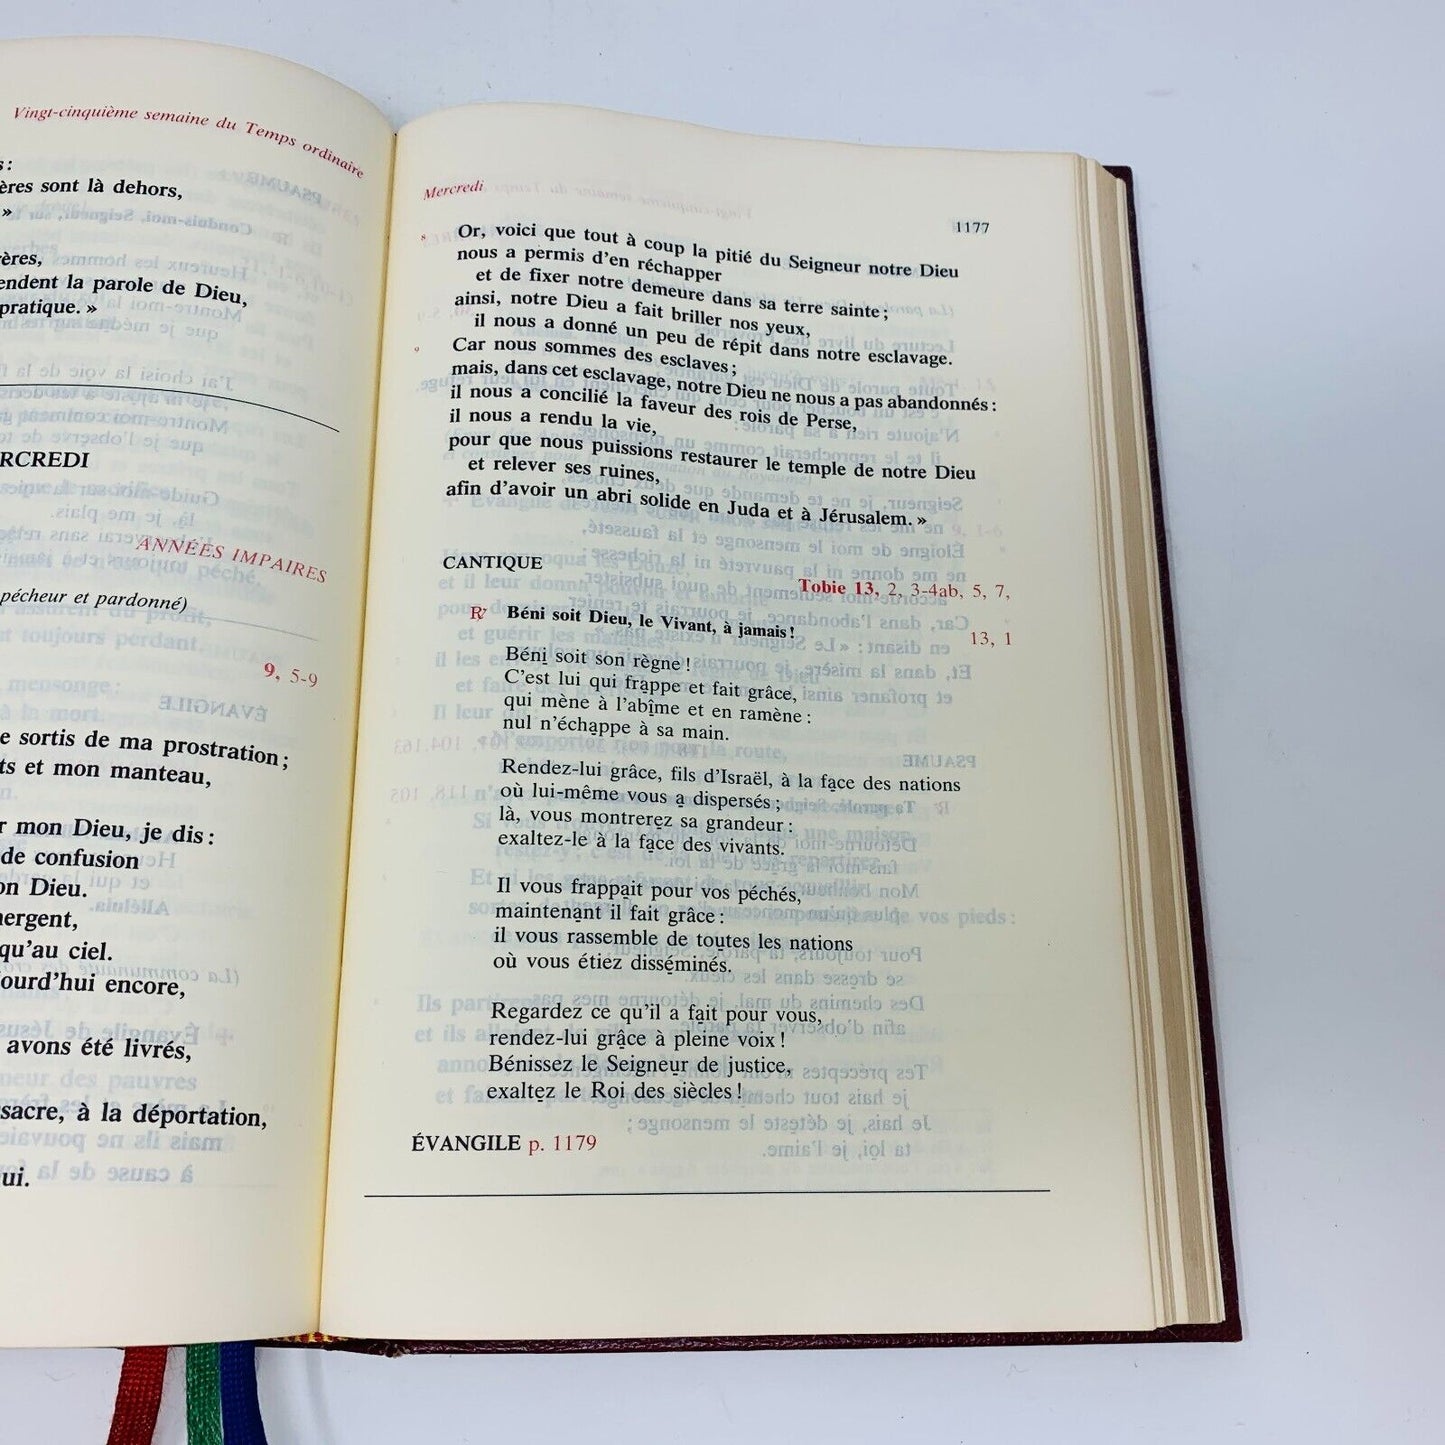 Vingt-cinquième semaine du Temps ordinaire
s :
ères sont là dehors,
»
ères,
endent la parole de Dieu,
pratique. »
RCREDI
ANNÉES IMPAIRES
pécheur et pardonné)
9, 5-9
e sortis de ma prostration ;
ts et mon manteau,
r mon Dieu, je dis :
de confusion
on Dieu.
nergent,
qu'au ciel.
jourd'hui encore,
avons été livrés,
sacre, à la déportation,
ui.
Mercredi
1177
8 Or, voici que tout à coup la pitié du Seigneur notre Dieu
nous a permis d'en réchapper
et de fixer notre demeure dans sa terre sainte ;
ainsi, notre Dieu a fait briller nos yeux,
il nous a donné un peu de répit dans notre esclavage.
9 Car nous sommes des esclaves ;
mais, dans cet esclavage, notre Dieu ne nous a pas abandonnés :
il nous a concilié la faveur des rois de Perse,
il nous a rendu la vie,
pour que nous puissions restaurer le temple de notre Dieu
et relever ses ruines,
afin d'avoir un abri solide en Juda et à Jérusalem. »
CANTIQUE
Tobie 13, 2, 3-4ab, 5, 7,
℟ Béni soit Dieu, le Vivant, à jamais !
13, 1
Béni soit son règne !
C'est lui qui frappe et fait grâce,
qui mène à l'abîme et en ramène :
nul n'échappe à sa main.
Rendez-lui grâce, fils d'Israël, à la face des nations
où lui-même vous a dispersés ;
là, vous montrerez sa grandeur :
exaltez-le à la face des vivants.
Il vous frappait pour vos péchés,
maintenant il fait grâce :
il vous rassemble de toutes les nations
où vous étiez disséminés.
Regardez ce qu'il a fait pour vous,
rendez-lui grâce à pleine voix !
Bénissez le Seigneur de justice,
exaltez le Roi des siècles !
ÉVANGILE p. 1179